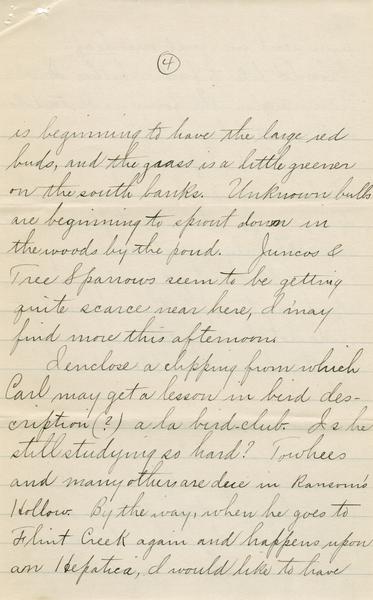 4
is beginning to have the large red
buds, and the grass is a little greener
on the south banks. Unknown bulbs
are beginning to sprout down in
the woods by the pond. Juncos &
Tree Sparrows seem to be getting
quite scarce near here, I may
find more this afternoon.
I enclose a clipping from which
Carl may get a lesson in bird des-
cription (?) a la bird-club. Is he
still studying so hard? Towhees
and many others are due in Ransom's
Hollow. By the way, when he goes to
Flint Creek again and happens upon
an Hepatica, I would like to have